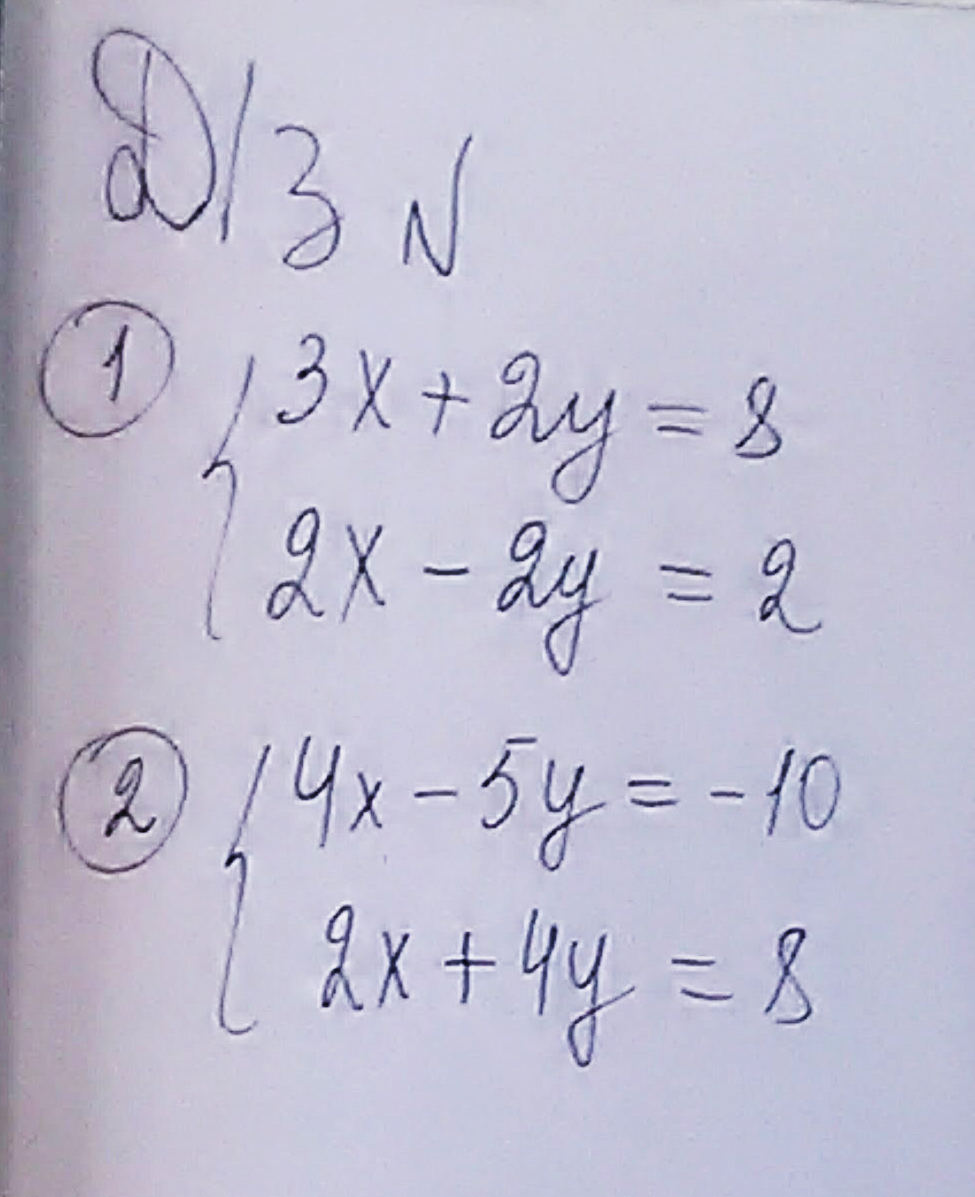 Д/З №
1 { 3x + 2y = 8
2x - 2y = 2
2 { 4x - 5y = -10
2x + 4y = 8